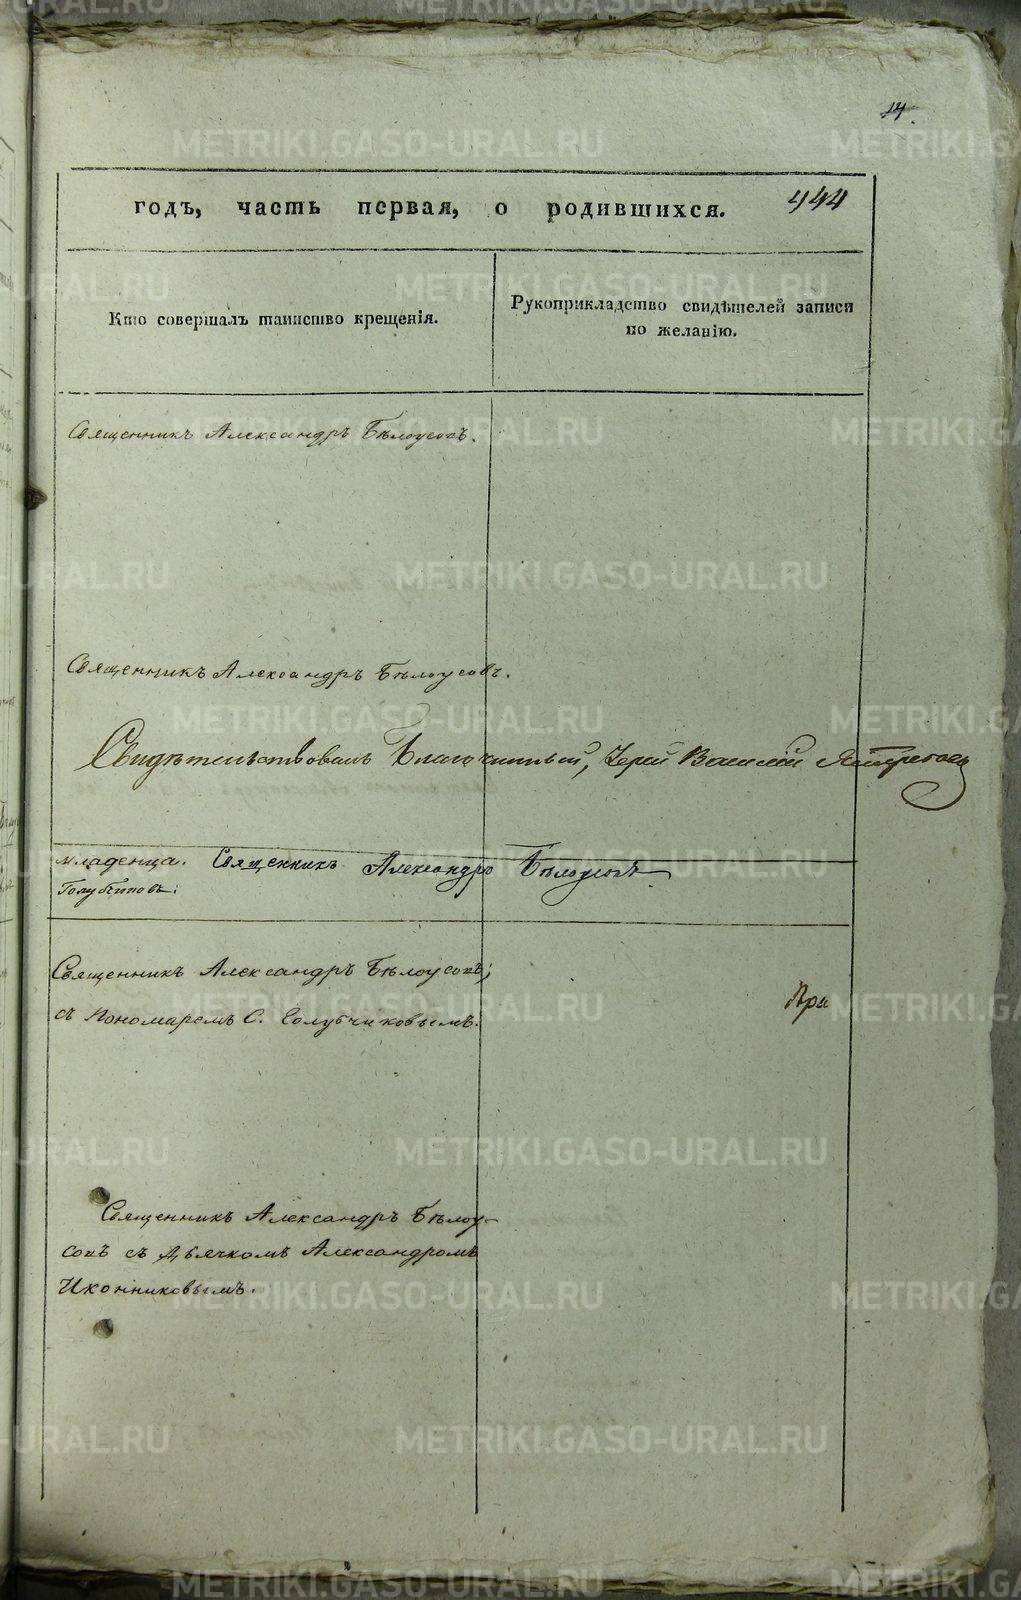 14.
годъ, часть первая, о родившихся. 944
Кто совершалъ таинство крещенія.
Рукоприкладство свидѣтелей записи
по желанію.
Священникъ Александръ Бѣлоусовъ.
Священникъ Александръ Бѣлоусовъ.
Свидѣтельствовалъ Благочинный, Іерей Василій
младенца. Священникъ Александръ Бѣлоусовъ
Священникъ Александръ Бѣлоусовъ;
съ Пономаремъ С. Голубчиковымъ.
При
Священникъ Александръ Бѣлоу-
совъ съ Дьячкомъ Александромъ
Иконниковымъ.
METRIKI.GASO-URAL.RU